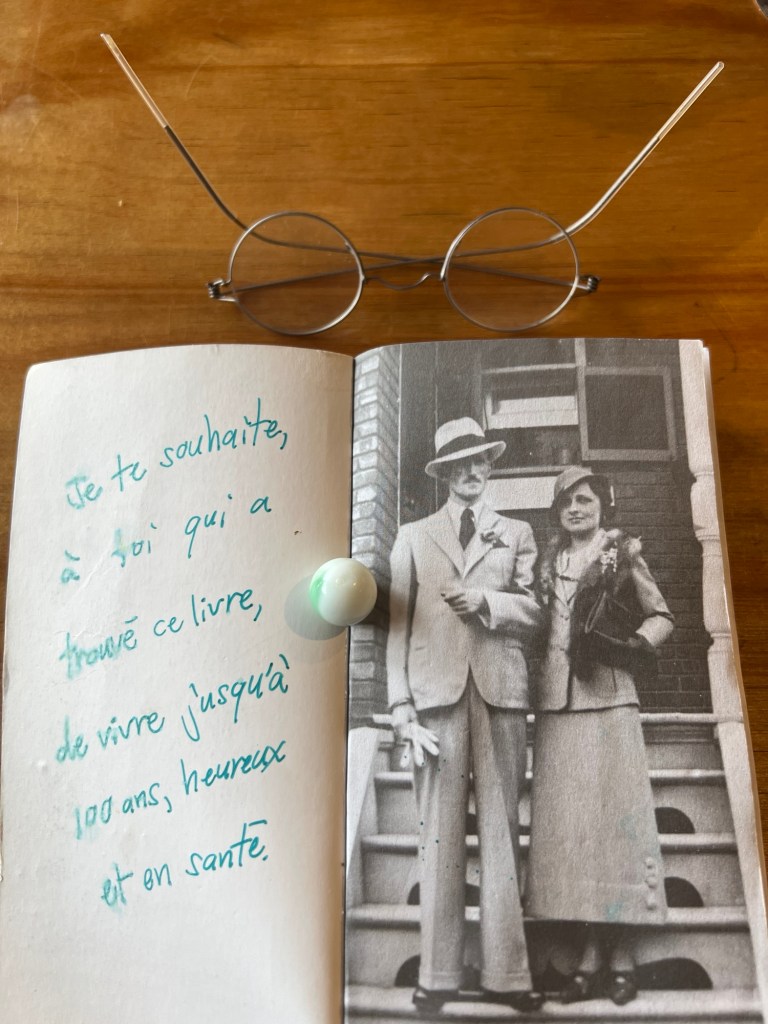 Je te souhaite,
à toi qui a
trouvé ce livre,
de vivre jusqu'à
100 ans, heureux
et en santé.